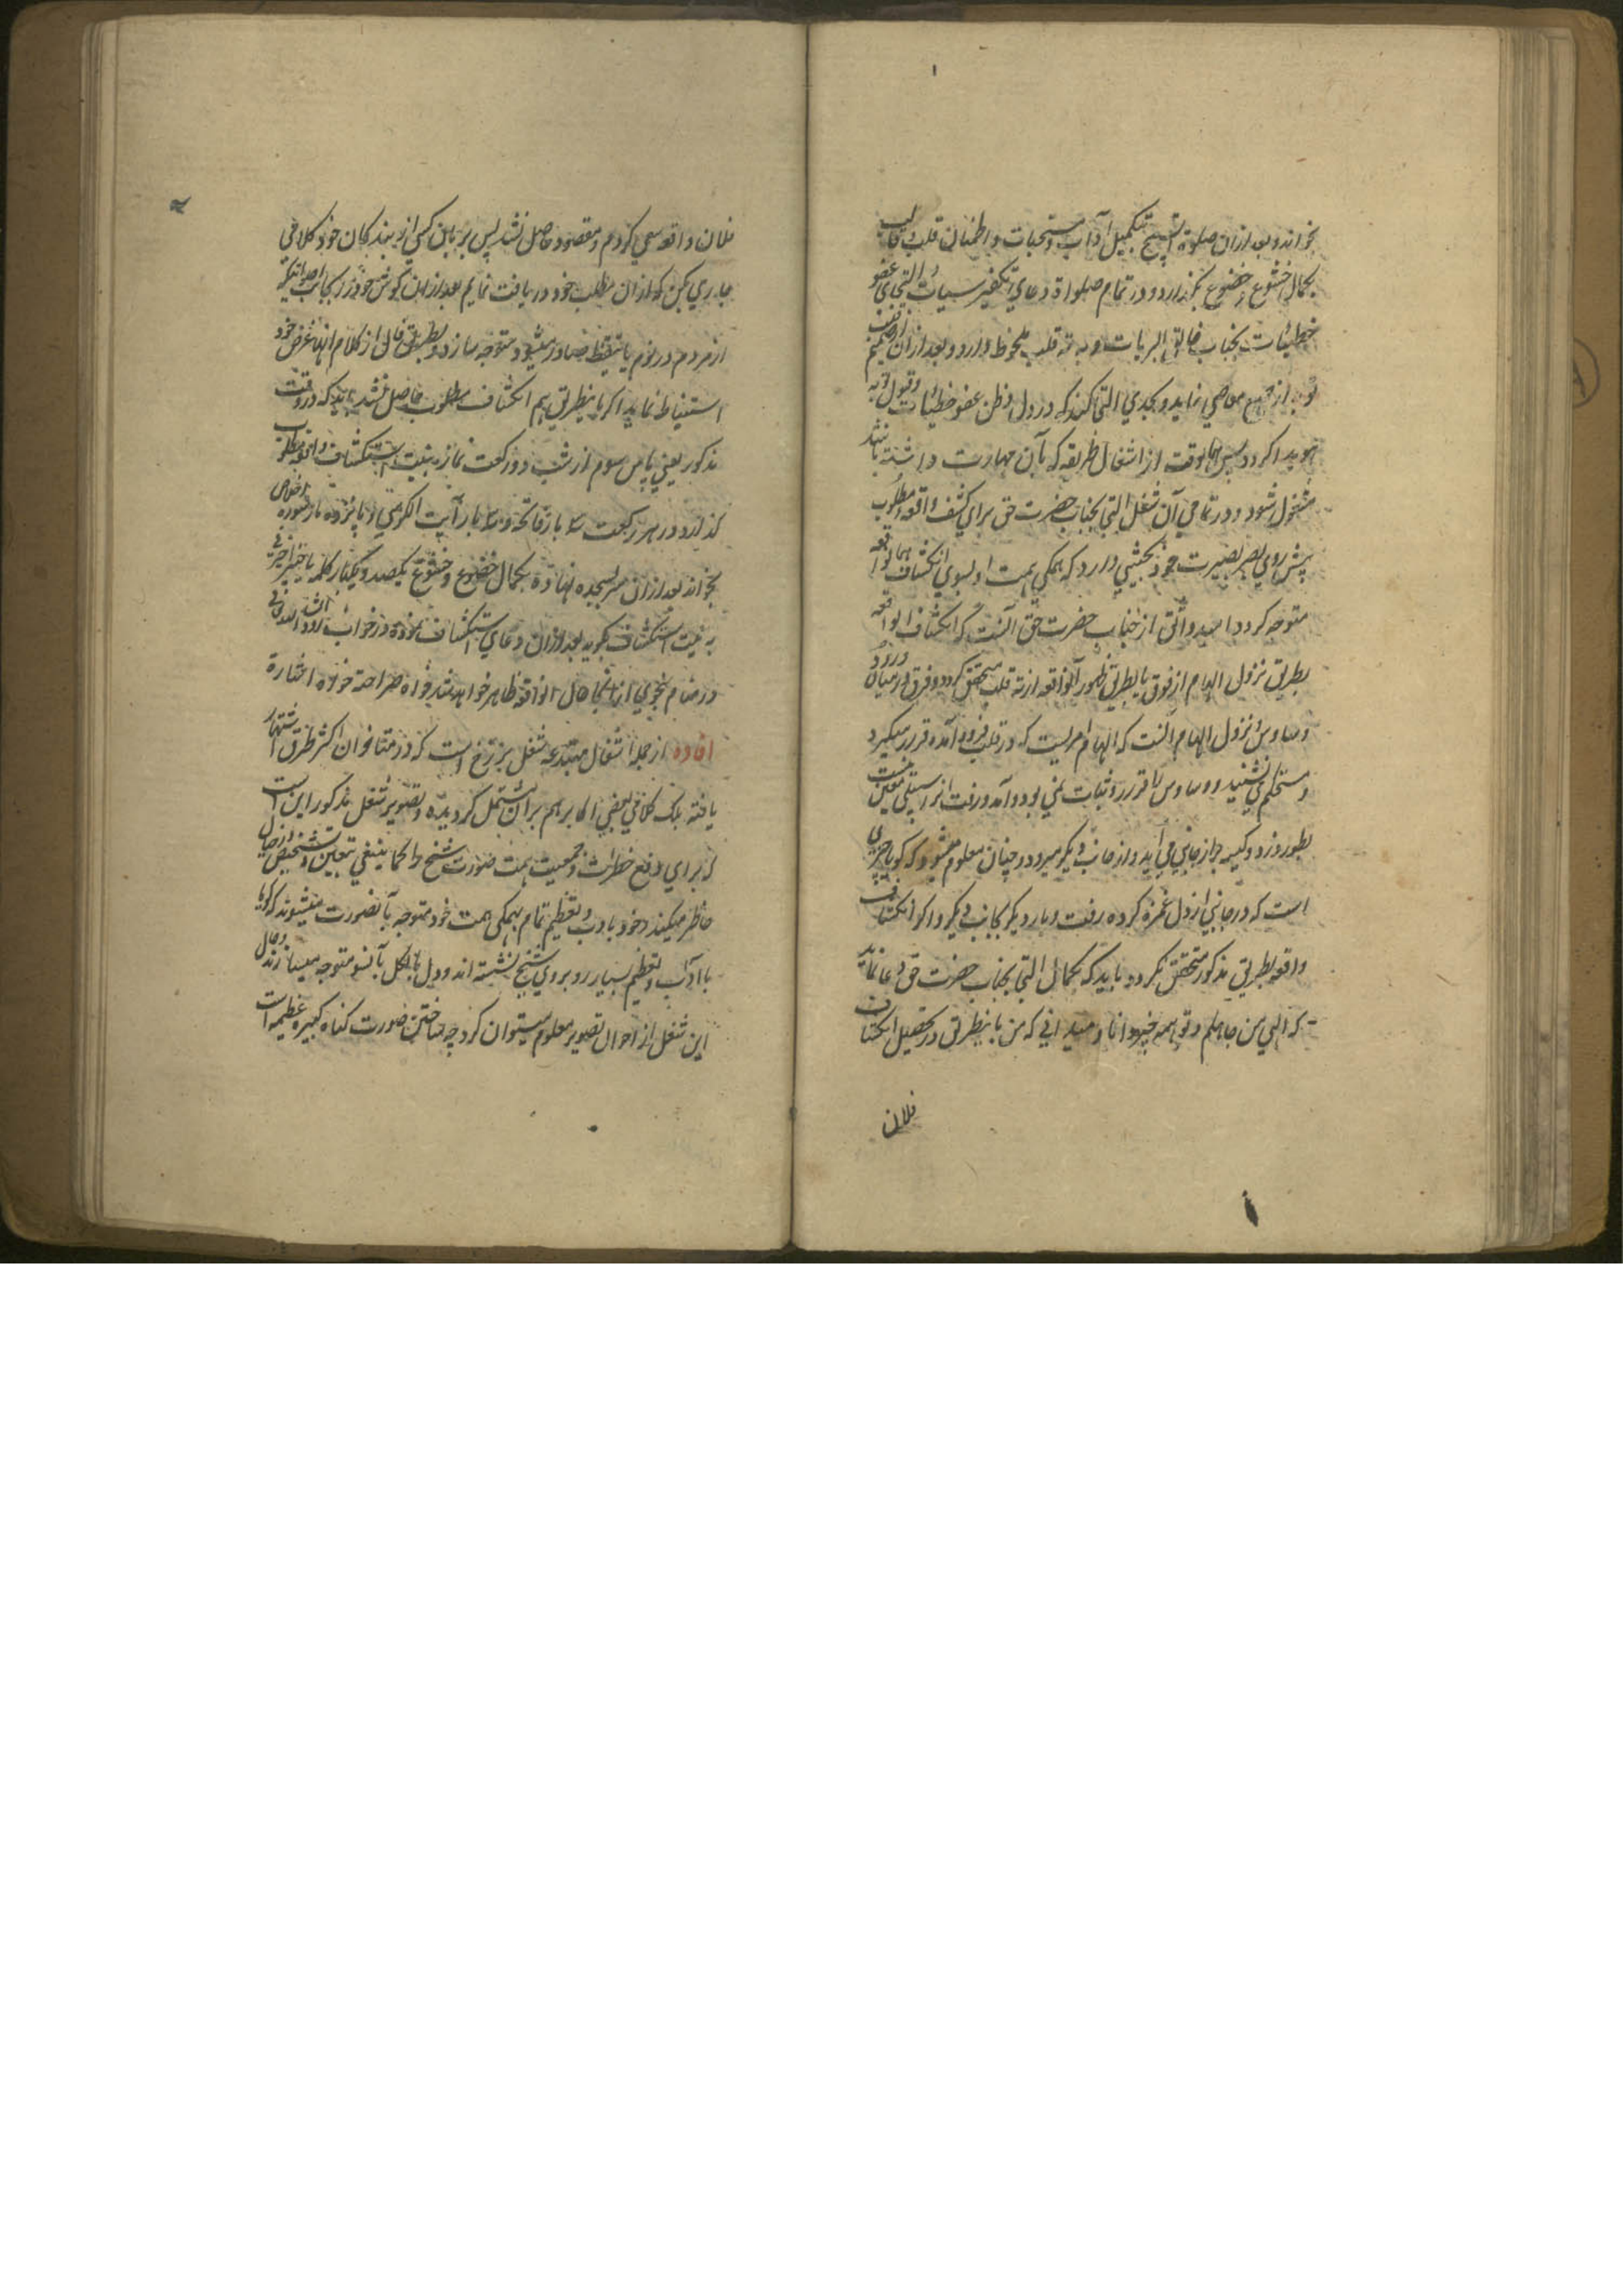 بخواند و بعد ازان صلوة التسبیح بتکمیل آداب و مستحبات و اطمنان قلب و قالب
بکمال خشوع و خضوع بگذارد و در تمام صلواة دعای تکفیر سیئات و التجای عفو
خطیئات بجناب خالق البریات به ته قلب ملحوظ دارد و بعد ازان از صمیم قلب
توبه از جمیع معاصی نماید و بحدی التجا کند که در دل وظن عفو خطیئات و قبول توبه
هویدا گردد پس همانوقت از اشغال طریقه که بآن مهارت داشته باشد
مشغول شود و در تمامی آن شغل التجا بجناب حضرت حق برای کشف واقعه مطلوب
پیش روی بصر بصیرت خود بحیثیتی دارد که همگی همت او بسوی انکشاف همانواقعه
متوجه گردد امید واثق از جناب حضرت حق آنست که انکشاف الواقعه
بطریق نزول الهام از فوق یا بطریق ظهور آنواقعه از ته قلب متحقق گردد و فرق در میان ورود
وساوس و نزول الهام آنست که الهام امریست که در قلب فرود آمده قرار میگیرد
و مستحکم می نشیند و وساوس را قرار و ثبات نمی بود و آمد و رفت انرا سبیلی معین نیست
بطور دزد و کیسه بر از جانبی می آید و از جانب دیگر میرود و چنان معلوم میشود که گویا چیزی
است که در جانبی از دل غمزه کرده رفت و بار دیگر بجانب دیگر و اگر انکشاف
واقعه بطریق مذکور متحقق نگردد باید که بکمال التجا بجناب حضرت حق دعا نماید
که الهی من جاهلم و تو همه چیز دانا و میدانی که من باینطریق در تحصیل انکشاف
فلان
فلان واقعه سعی کردم و مقصود حاصل نشد پس بر زبان کسی از بندگان خود کلامی
جاری کن که ازان مطلب خود دریافت نمایم بعد ازان گوش خود را بجانب اصواتیکه
از مردم در نوم یا تیقظ صادر میشود متوجه سازد و بطریق فال از کلام انها غرض خود
استنباط نماید اگر باینطریق هم انکشاف مطلوب حاصل نشد باید که در وقت
مذکور یعنی پاس سوم از شب دو رکعت نماز به نیت استکشاف واقعه مطلوب
گذارد در هر رکعت سه بار فاتحه و سه بار آیت الکرسی و پانزده بار سوره اخلاص
بخواند بعد ازان سر بسجده نهاده بکمال خضوع و خشوع یکصد و یکبار کلمه یا خبیر اخبرنی
به نیت استکشاف بگوید بعد ازان دعای استکشاف نموده در خواب رود انشاء الله تعالی
در منام نحوی از انحا حال انواقعه ظاهر خواهد شد خواه صراحة خواه اشارة
افاده از جمله اشغال مبتدعه شغل برزخ است که در متاخران اکثر طرق اشتهار
یافته بلکه کلام بعضی اکابر هم بران مشتمل گردیده و تصویر شغل مذکور این است
که برای دفع خطرات و جمعیت همت صورت شیخ را کما ینبغی بتعیین و تشخیص در خیال
حاظر میکنند و خود بادب و تعظیم تمام بهمگی همت خود متوجه بآنصورت میشوند که گویا
با آداب و تعظیم بسیار روبروی شیخ نشسته اند و دل بالکل بآنسو متوجه میسازند و حال
این شغل از احوال تصویر معلوم میتوان کرد چه ساختن صورت گناه کبیره عظیمه است